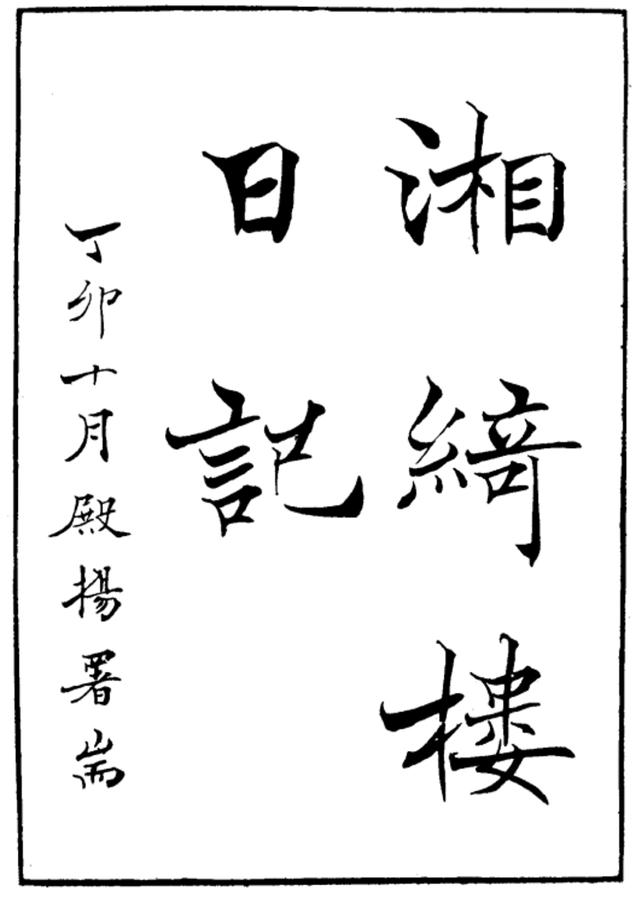 湘綺樓
日記
丁卯十月殿揚署耑